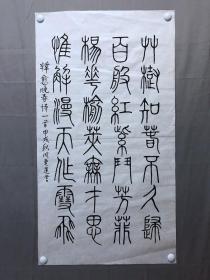 艸樹知萅不久歸
百般紅紫鬥芳菲
楊華榆莢無才思
惟解漫天作雪飛
韓愈晚春詩一首甲戌秋月